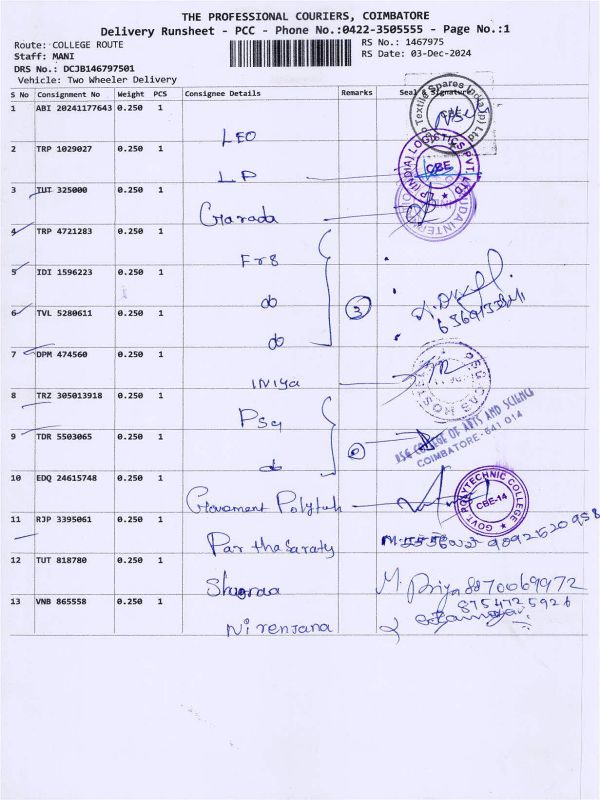 THE PROFESSIONAL COURIERS, COIMBATORE
Delivery Runsheet - PCC - Phone No.:0422-3505555 - Page No.:1
Route: COLLEGE ROUTE RS No.: 1467975
Staff: MANI RS Date: 03-Dec-2024
DRS No.: DCJB146797501
Vehicle: Two Wheeler Delivery
S No Consignment No Weight PCS Consignee Details Remarks Seal & Signature
1 ABI 20241177643 0.250 1 LEO
Textile Spares India (P) Ltd CBE
2 TRP 1029027 0.250 1 LP
(INDIA) LOGISTICS PVT. LTD CBE
3 TUT 325000 0.250 1 Garada
4 TRP 4721283 0.250 1 Fr8
5 IDI 1596223 0.250 1 do 3
6 TVL 5280611 0.250 1 do
7 DPM 474560 0.250 1 INiya
8 TRZ 305013918 0.250 1 PSg
9 TDR 5503065 0.250 1 do
PSG COLLEGE OF ARTS AND SCIENCE
COIMBATORE-641 014
10 EDQ 24615748 0.250 1 Government
GOVT POLYTECHNIC COLLEGE CBE-14
11 RJP 3395061 0.250 1 Parthasaraty 9092520958
12 TUT 818780 0.250 1 M. Priya 8870069972
13 VNB 865558 0.250 1 Nirenjana 8754725926